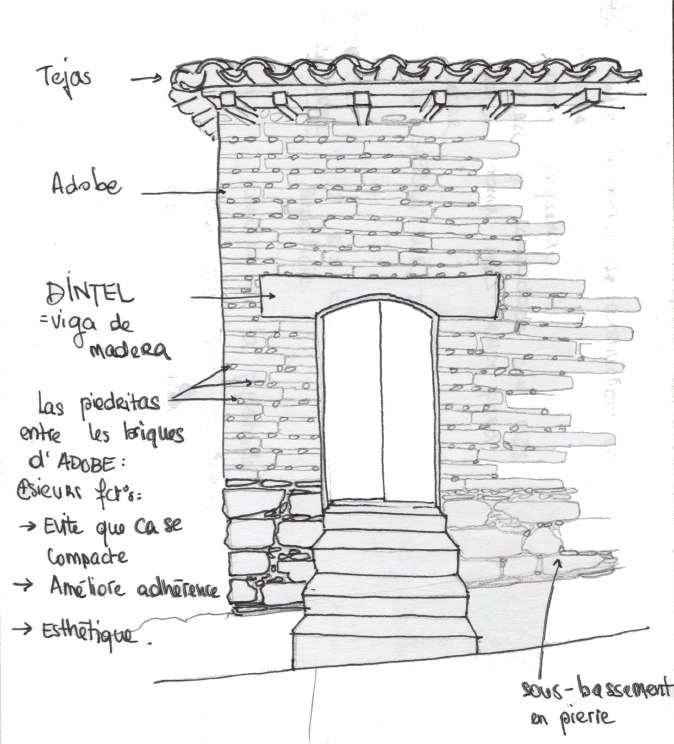 Tejas
Adobe
DINTEL
=viga de
madera
Las piedritas
entre les briques
d'ADOBE:
⊕sieurs fct°s:
→ Evite que ca se
compacte
→ Améliore adhérence
→ Esthétique.
sous-bassement
en pierre